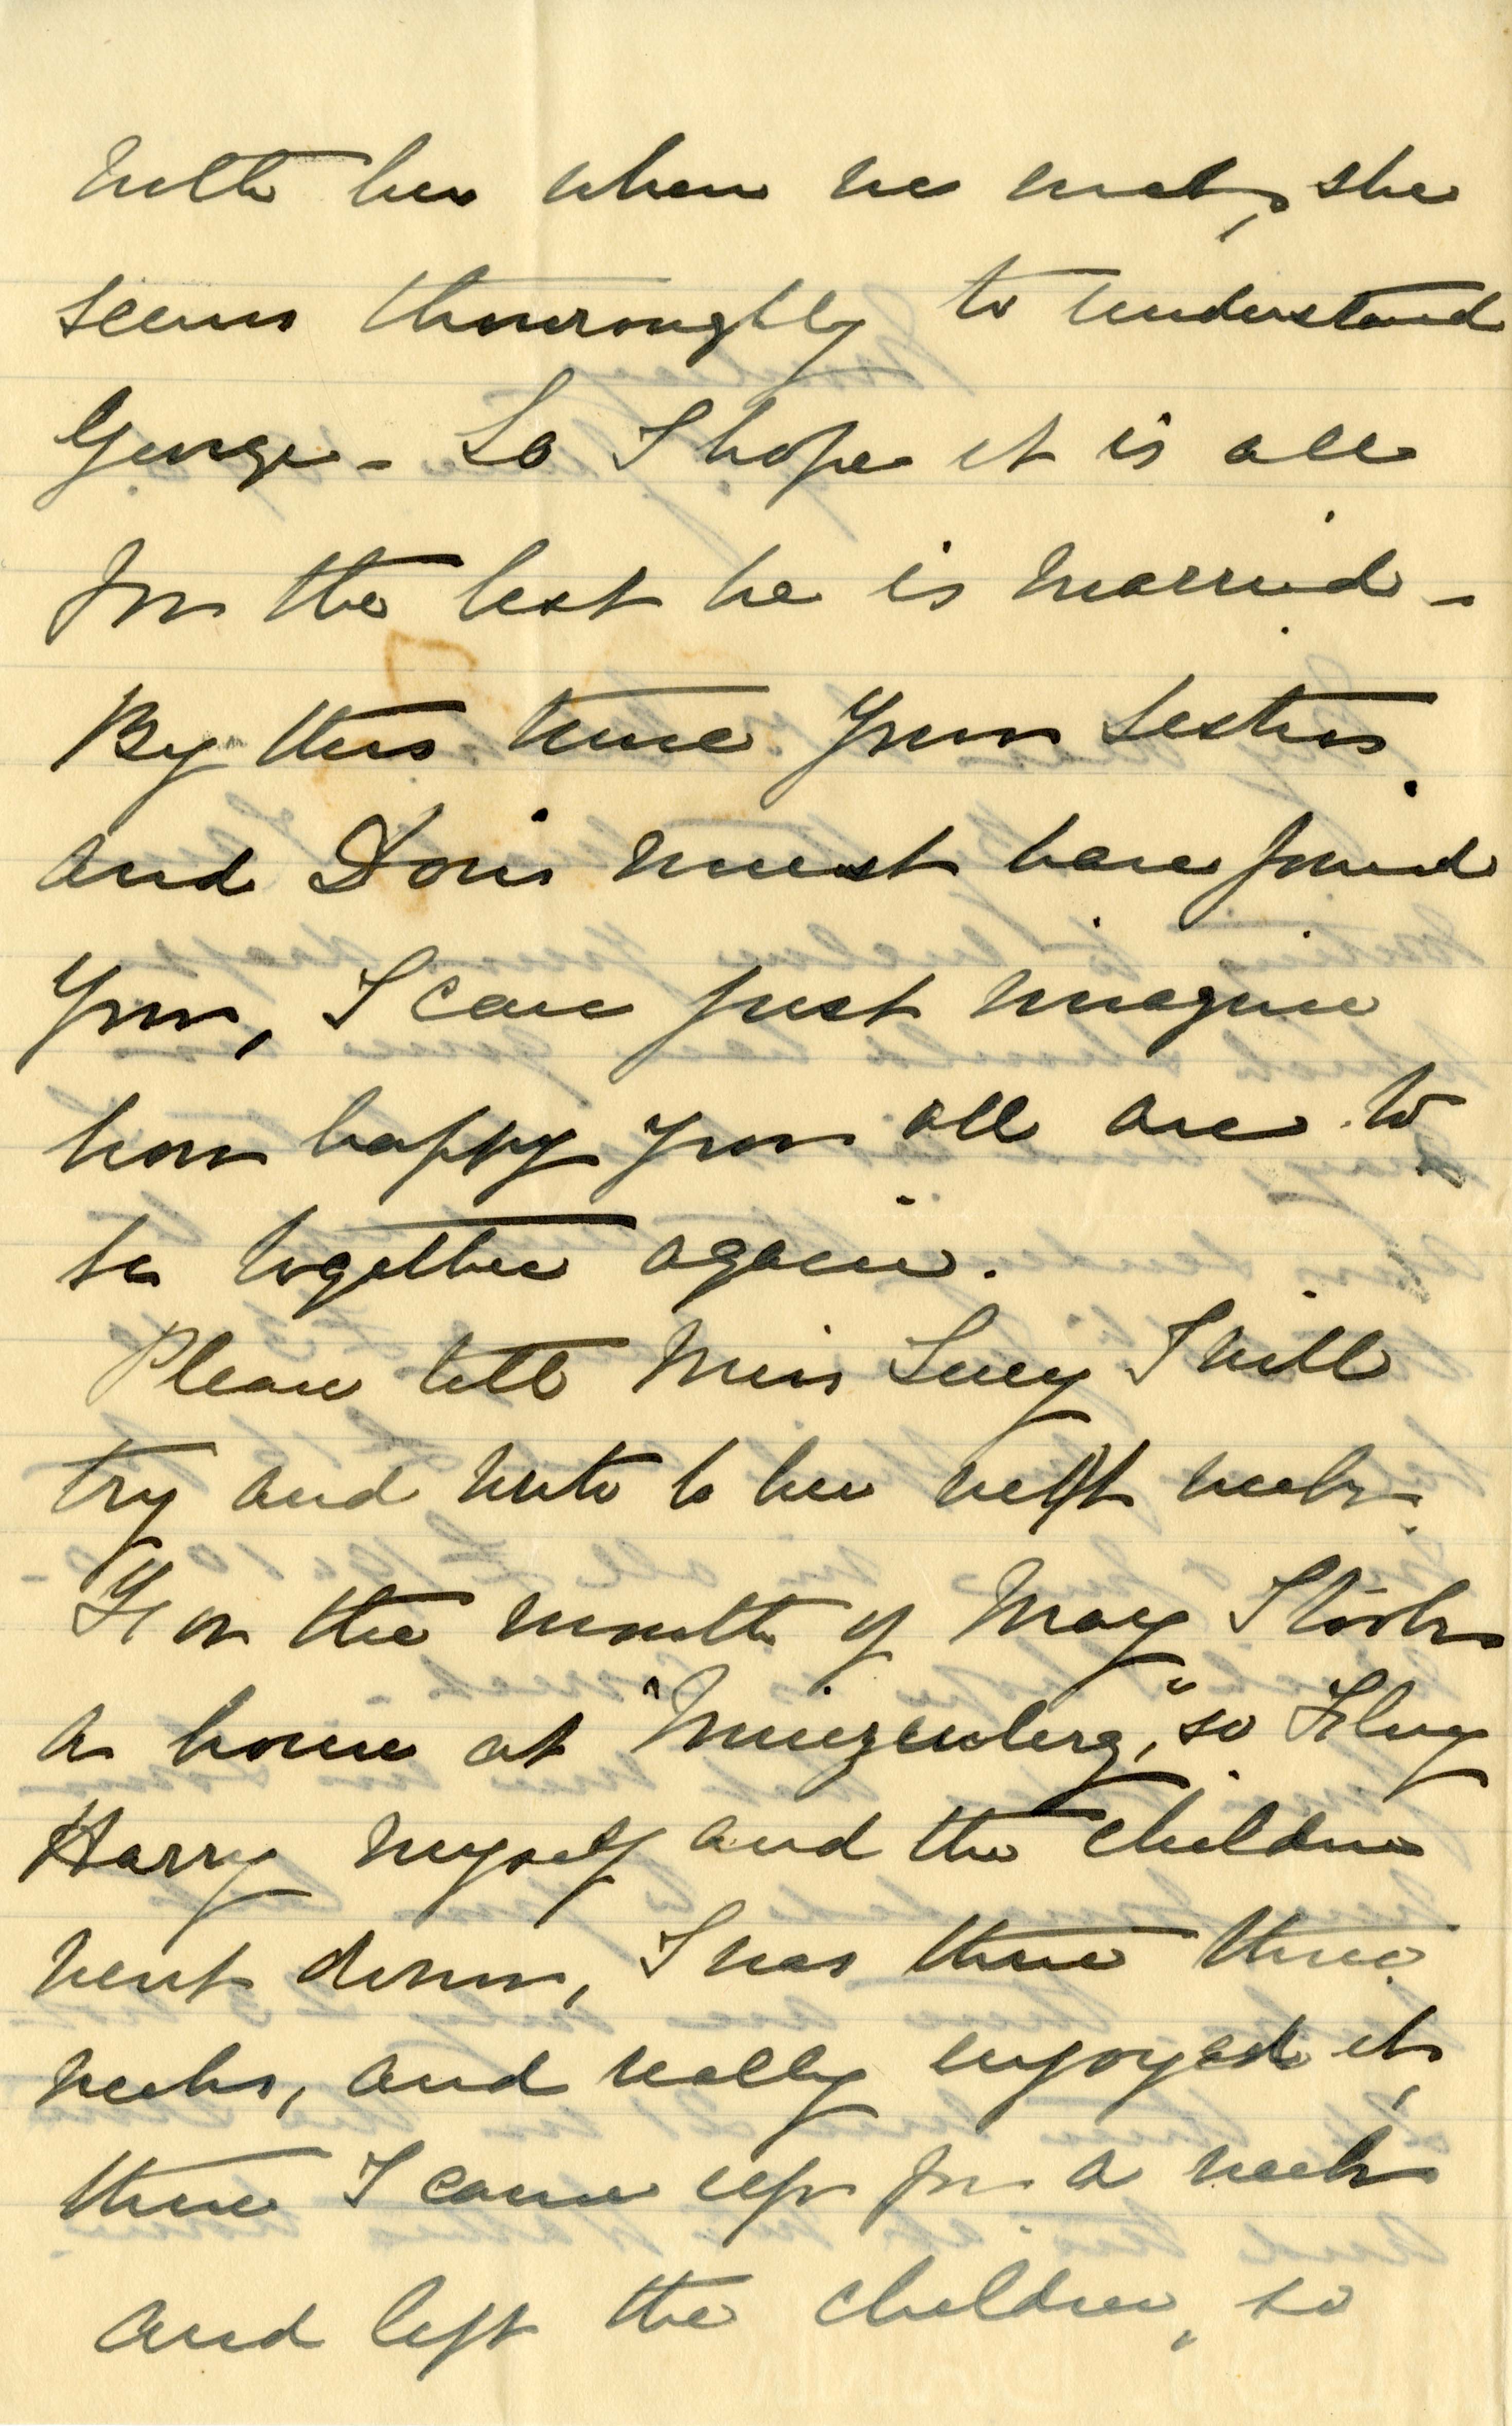 with her when we met, she
seems thouroughly to understand
George - So I hope it is all
for the best he is married -
By this time your sisters
and Doris must have found
you, I can just imagine
how happy you all are to
be together again.
Please tell Miss Lucy I will
try and write to her next week.
For the month of May I took
a house at "Muizenberg," so
Harry myself and the children
went down, I was there three
weeks, and really enjoyed it,
then I came up for a week
and left the children, so